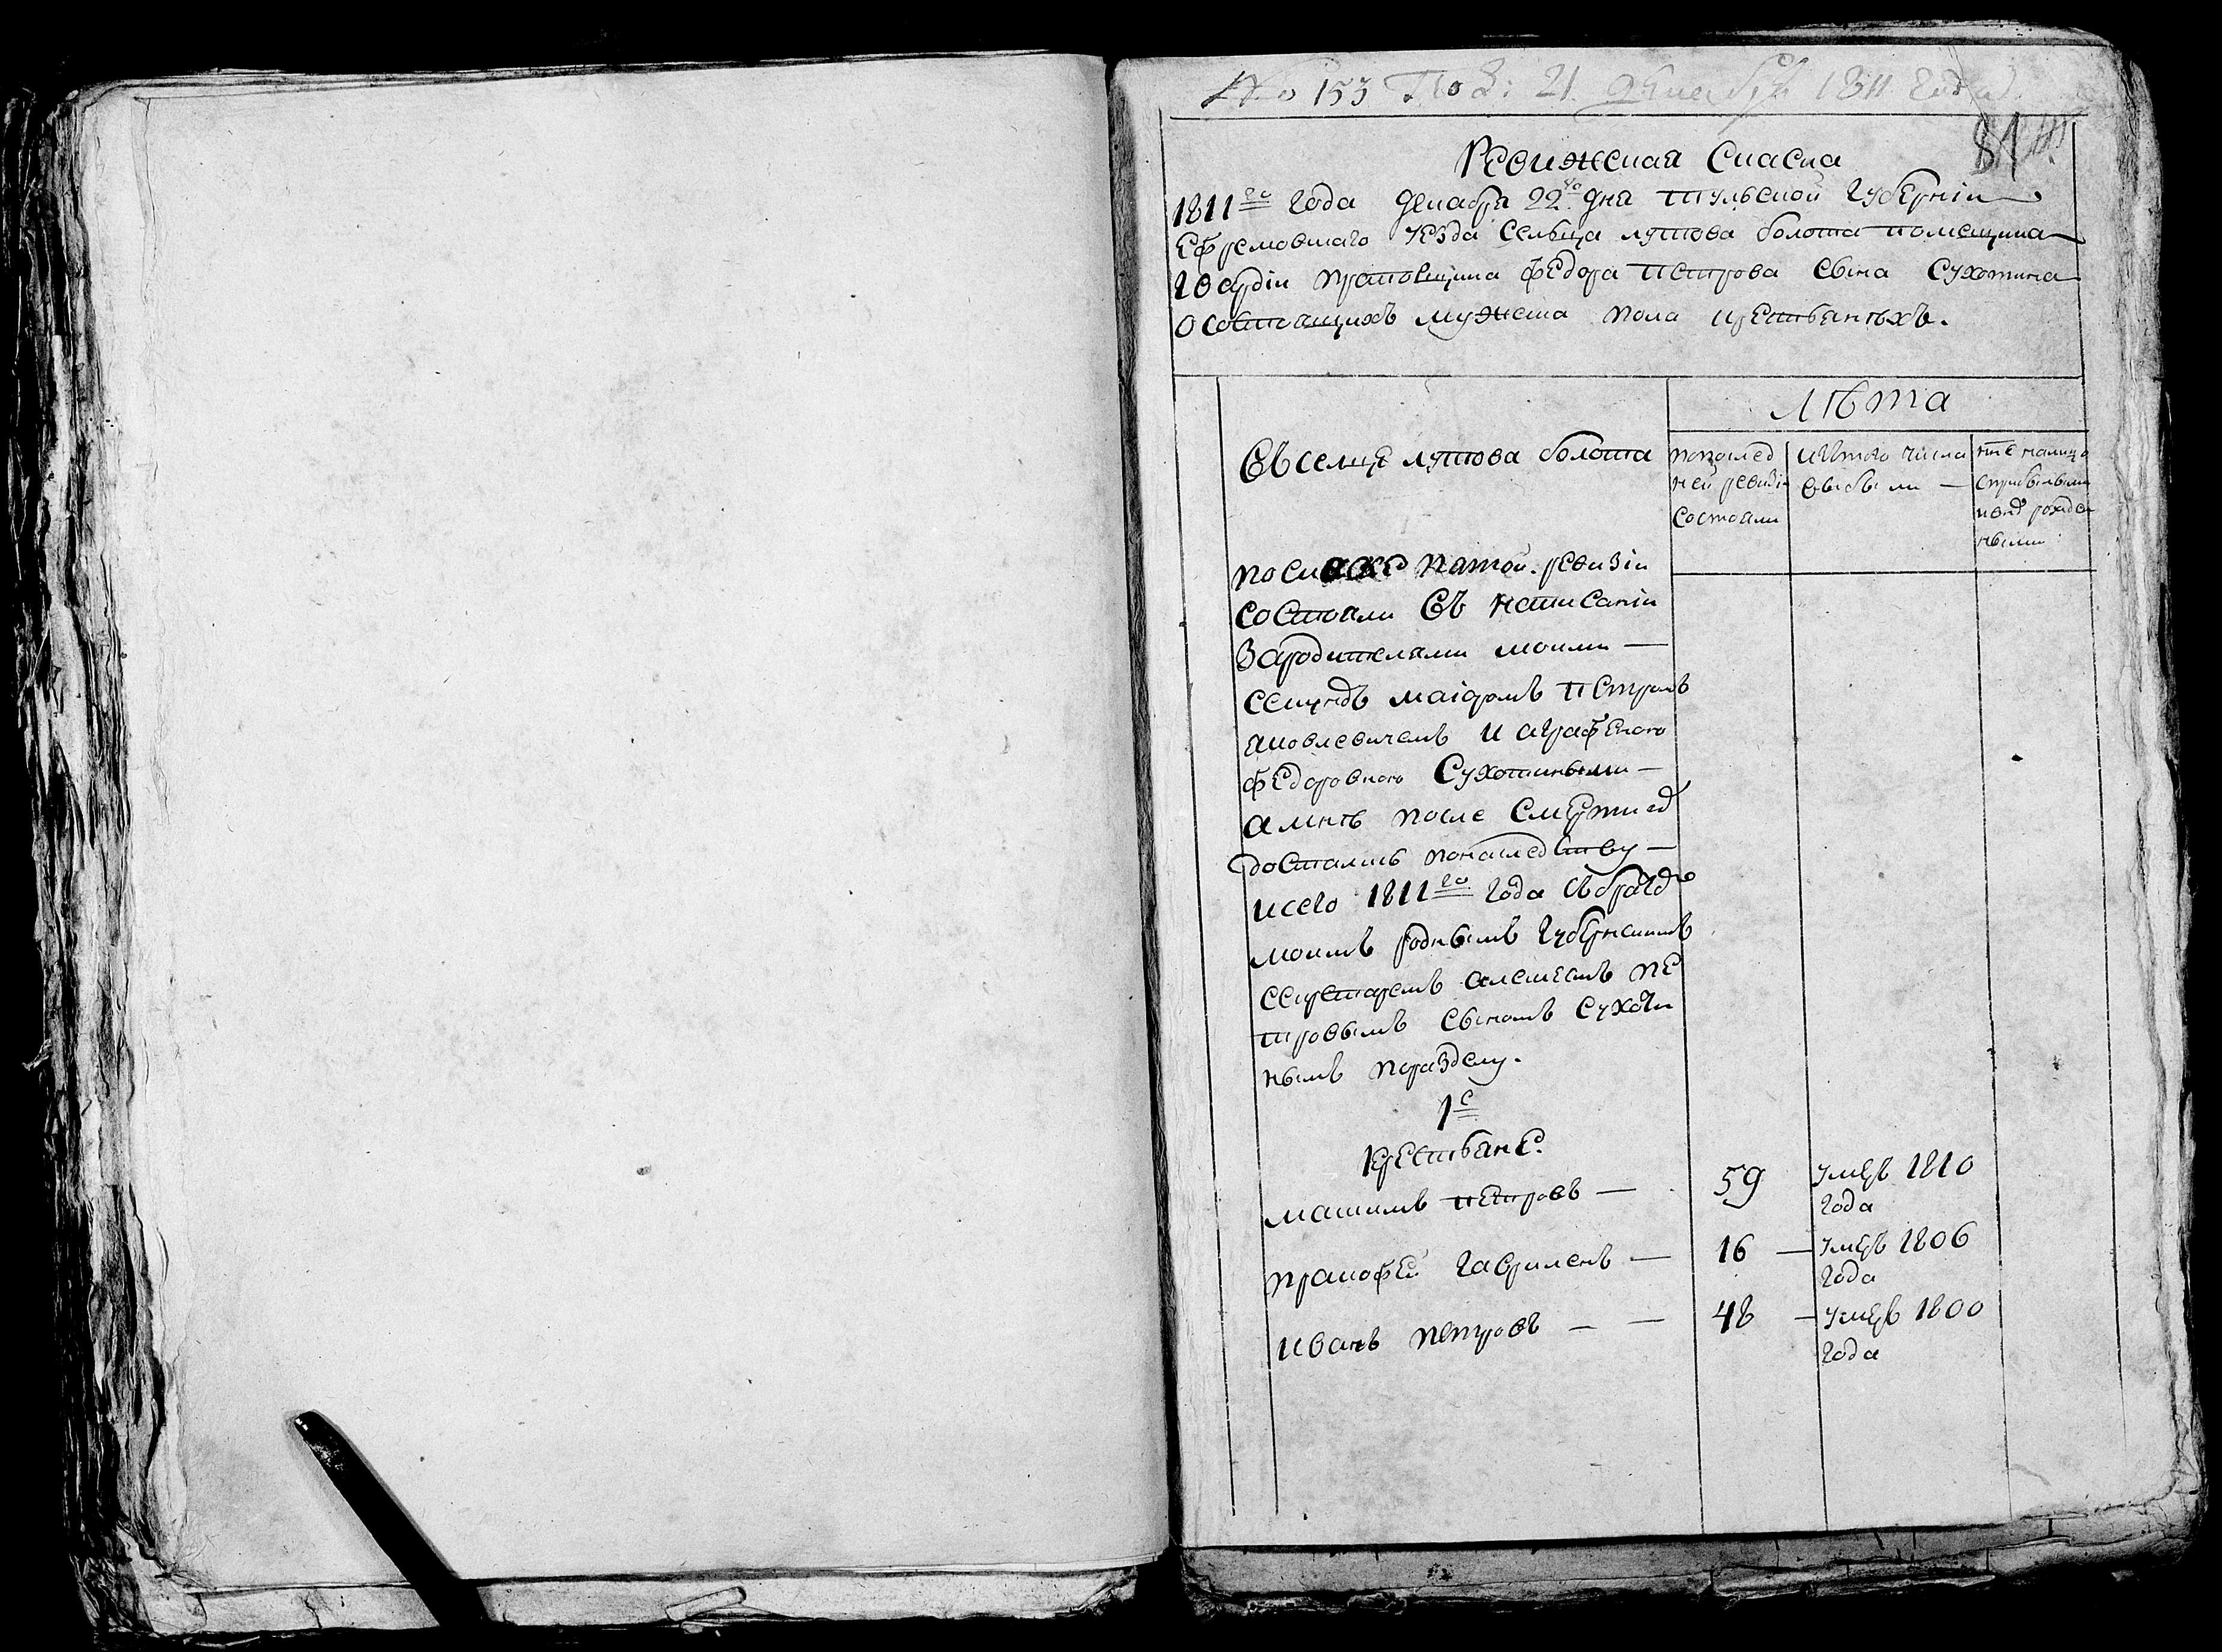 № 153 Под: 21 декабря 1811 года
81
Ревижская Скаска
1811го года декабря 22го дня тульской губерніи
ефремовскаго уезда сельца лутова болота помещика
гвардіи прапорщика федора петрова сына Сухотина
о состоящихъ мужеска пола крестьянехъ.
Лѣта
Въ сельце лутова болота
попослед
ней ревизіи
состояли
изътого числа
выбыли —
ныне налицо
сприбылыми
ивновь рожден
ными
поскаске пятой ревизіи
состояли въ написаніи
зародителями моими —
секундъ маіоромъ петромъ
яковлевичемъ и аграфеною
федоровною Сухотиными —
а мнѣ после смерти ихъ
достались понаследству —
исего 1811го года сбратомъ
моимъ роднымъ губернскимъ
секретаремъ алексеемъ пе
тровымъ сыномъ сухоти
нымъ поразделу.
1е
Крестьяне.
максимъ петровъ — 59 умеръ 1810
года
пракофей гавриловъ — 16 — умеръ 1806
года
иванъ петровъ — — 48 — умеръ 1800
года